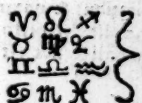 ♈ ♌ ♐
♉ ♍ ♑
♊ ♎ ♒
♋ ♏ ♓